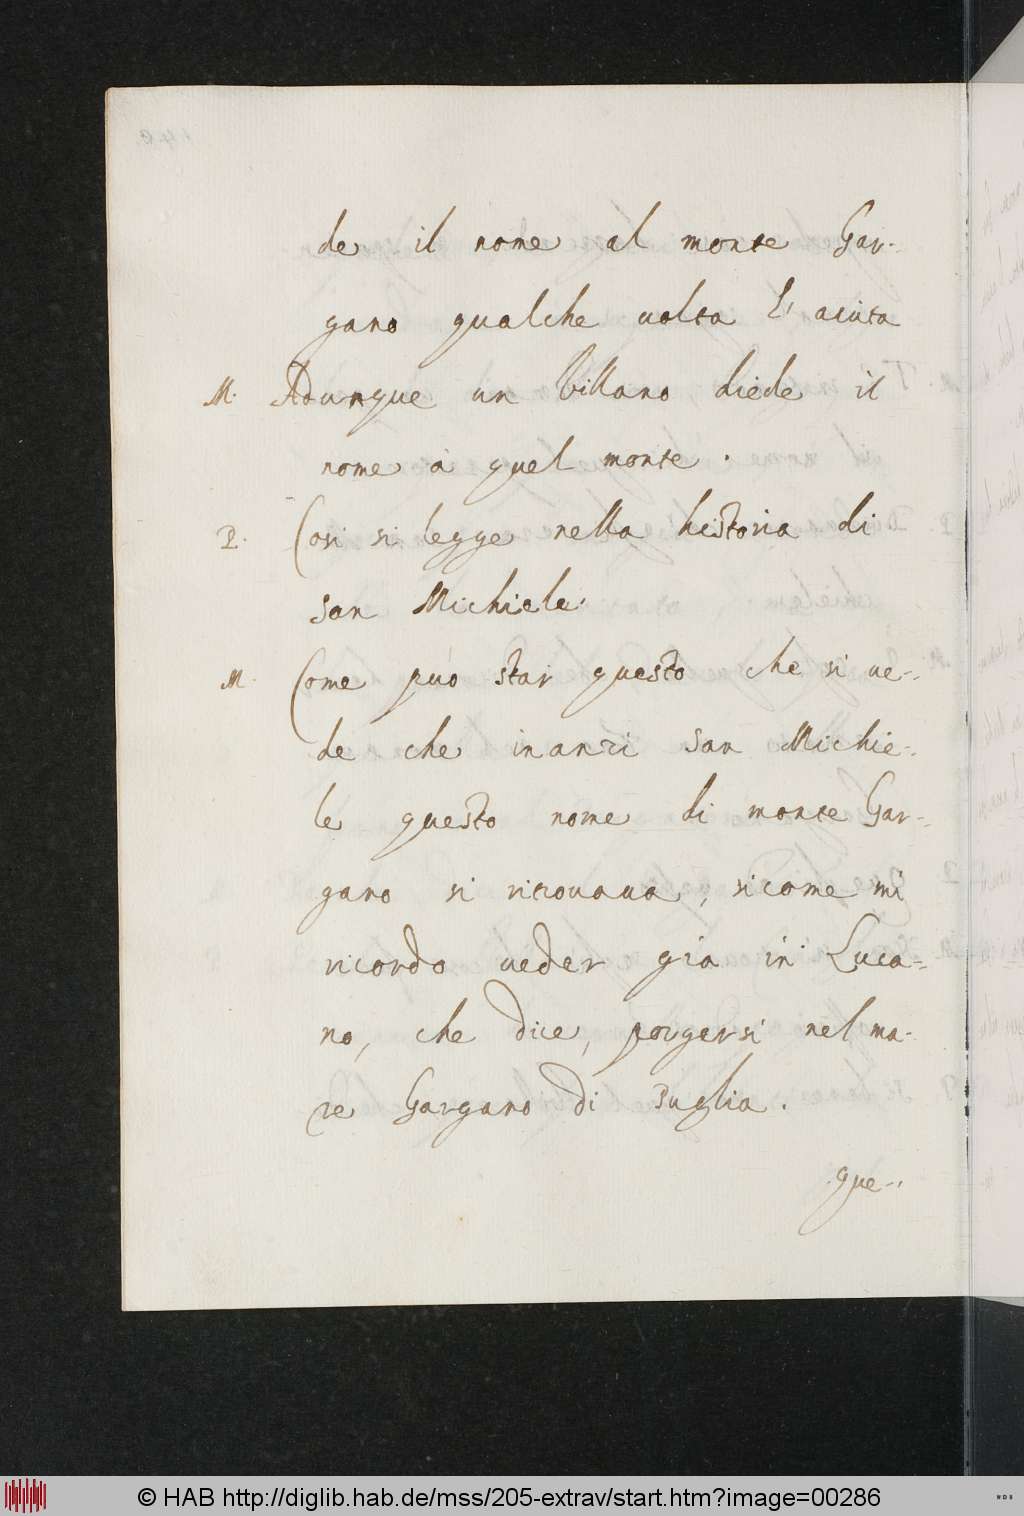 de il nome al monte Gar-
gano qualche uolta l'aiuta
M. Adunque un Villano diede il
nome a quel monte.
P. Cosi si legge nella historia di
san Michiele.
M. Come può star questo che si ue-
de che inanzi san Michie-
le questo nome di monte Gar-
gano si ritrouaua, sicome mi
ricordo ueder gia in Luca-
no, che dice, porgersi nel ma-
re Gargano di Puglia.
que-
© HAB http://diglib.hab.de/mss/205-extrav/start.htm?image=00286